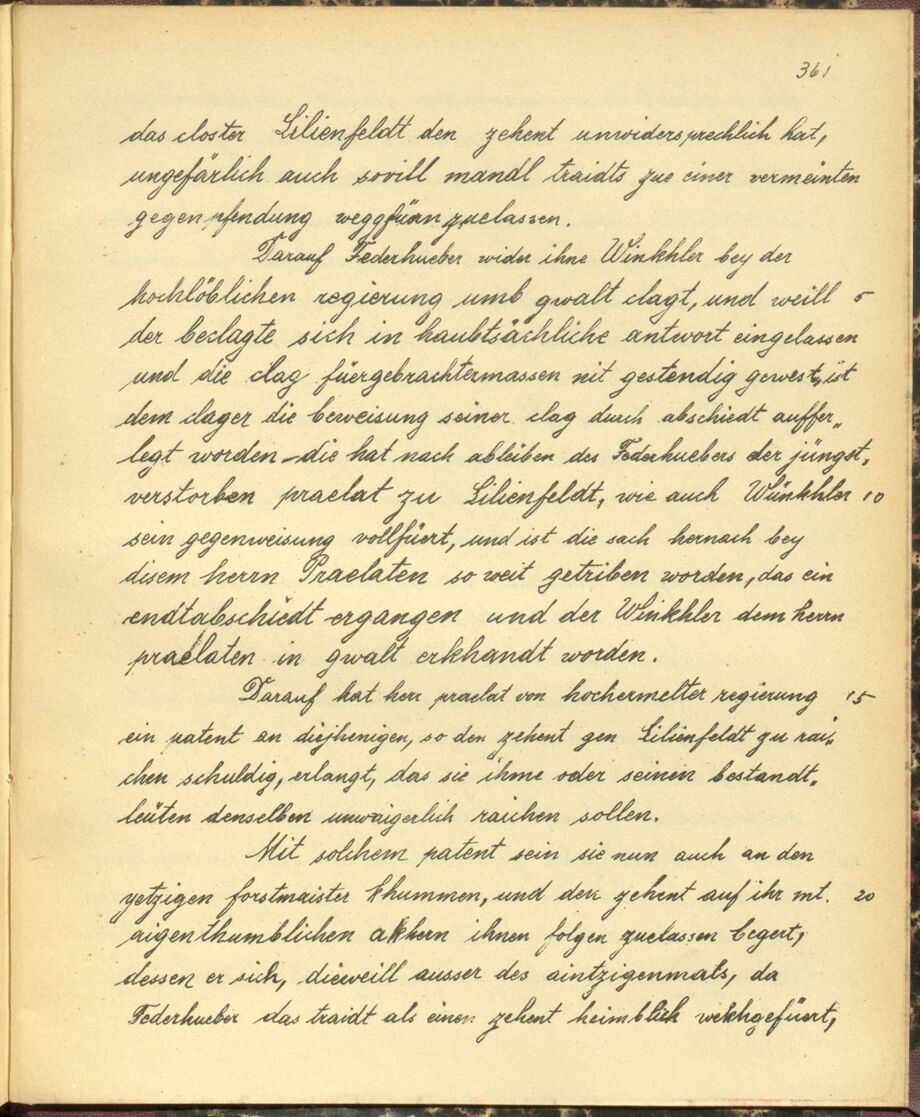 361
das closter Lilienfeldt den zehent unwidersprechlich hat,
ungefärlich auch sovill mandl traidts zue einer vermeinten
gegenpfendung weggfüan zuelassen.
Darauf Federhueber wider ihne Winkhler bey der
hochlöblichen regierung umb gwalt clagt, und weill 5
der beclagte sich in haubtsächliche antwort eingelassen
und die clag füergebrachtermassen nit gestendig gewest, ist
dem clager die beweisung seiner clag durch abschiedt auffer„
legt worden – die hat nach ableiben des Federhuebers der jüngst„
verstorben praelat zu Lilienfeldt, wie auch Wünkhler 10
sein gegenweisung vollfüert, und ist die sach hernach bey
disem herrn Praelaten so weit getriben worden, das ein
endtabschiedt ergangen und der Winkhler dem herrn
praelaten in gwalt erkhandt worden.
Darauf hat herr praelat von hochermelter regierung 15
ein patent an diejhenigen, so den zehent gen Lilienfeldt zu rai„
chen schuldig, erlangt, das sie ihme oder seinen bestandt„
leüten denselben unwaigerlich raichen sollen.
Mit solchem patent sein sie nun auch an den
yetzigen forstmaister khummen, und den zehent auf ihr mt. 20
aigenthumblichen akhern ihnen folgen zuelassen begert,
dessen er sich, dieweill ausser des aintzigenmals, da
Federhueber das traidt als einen zehent heimblich wekhgefüert,